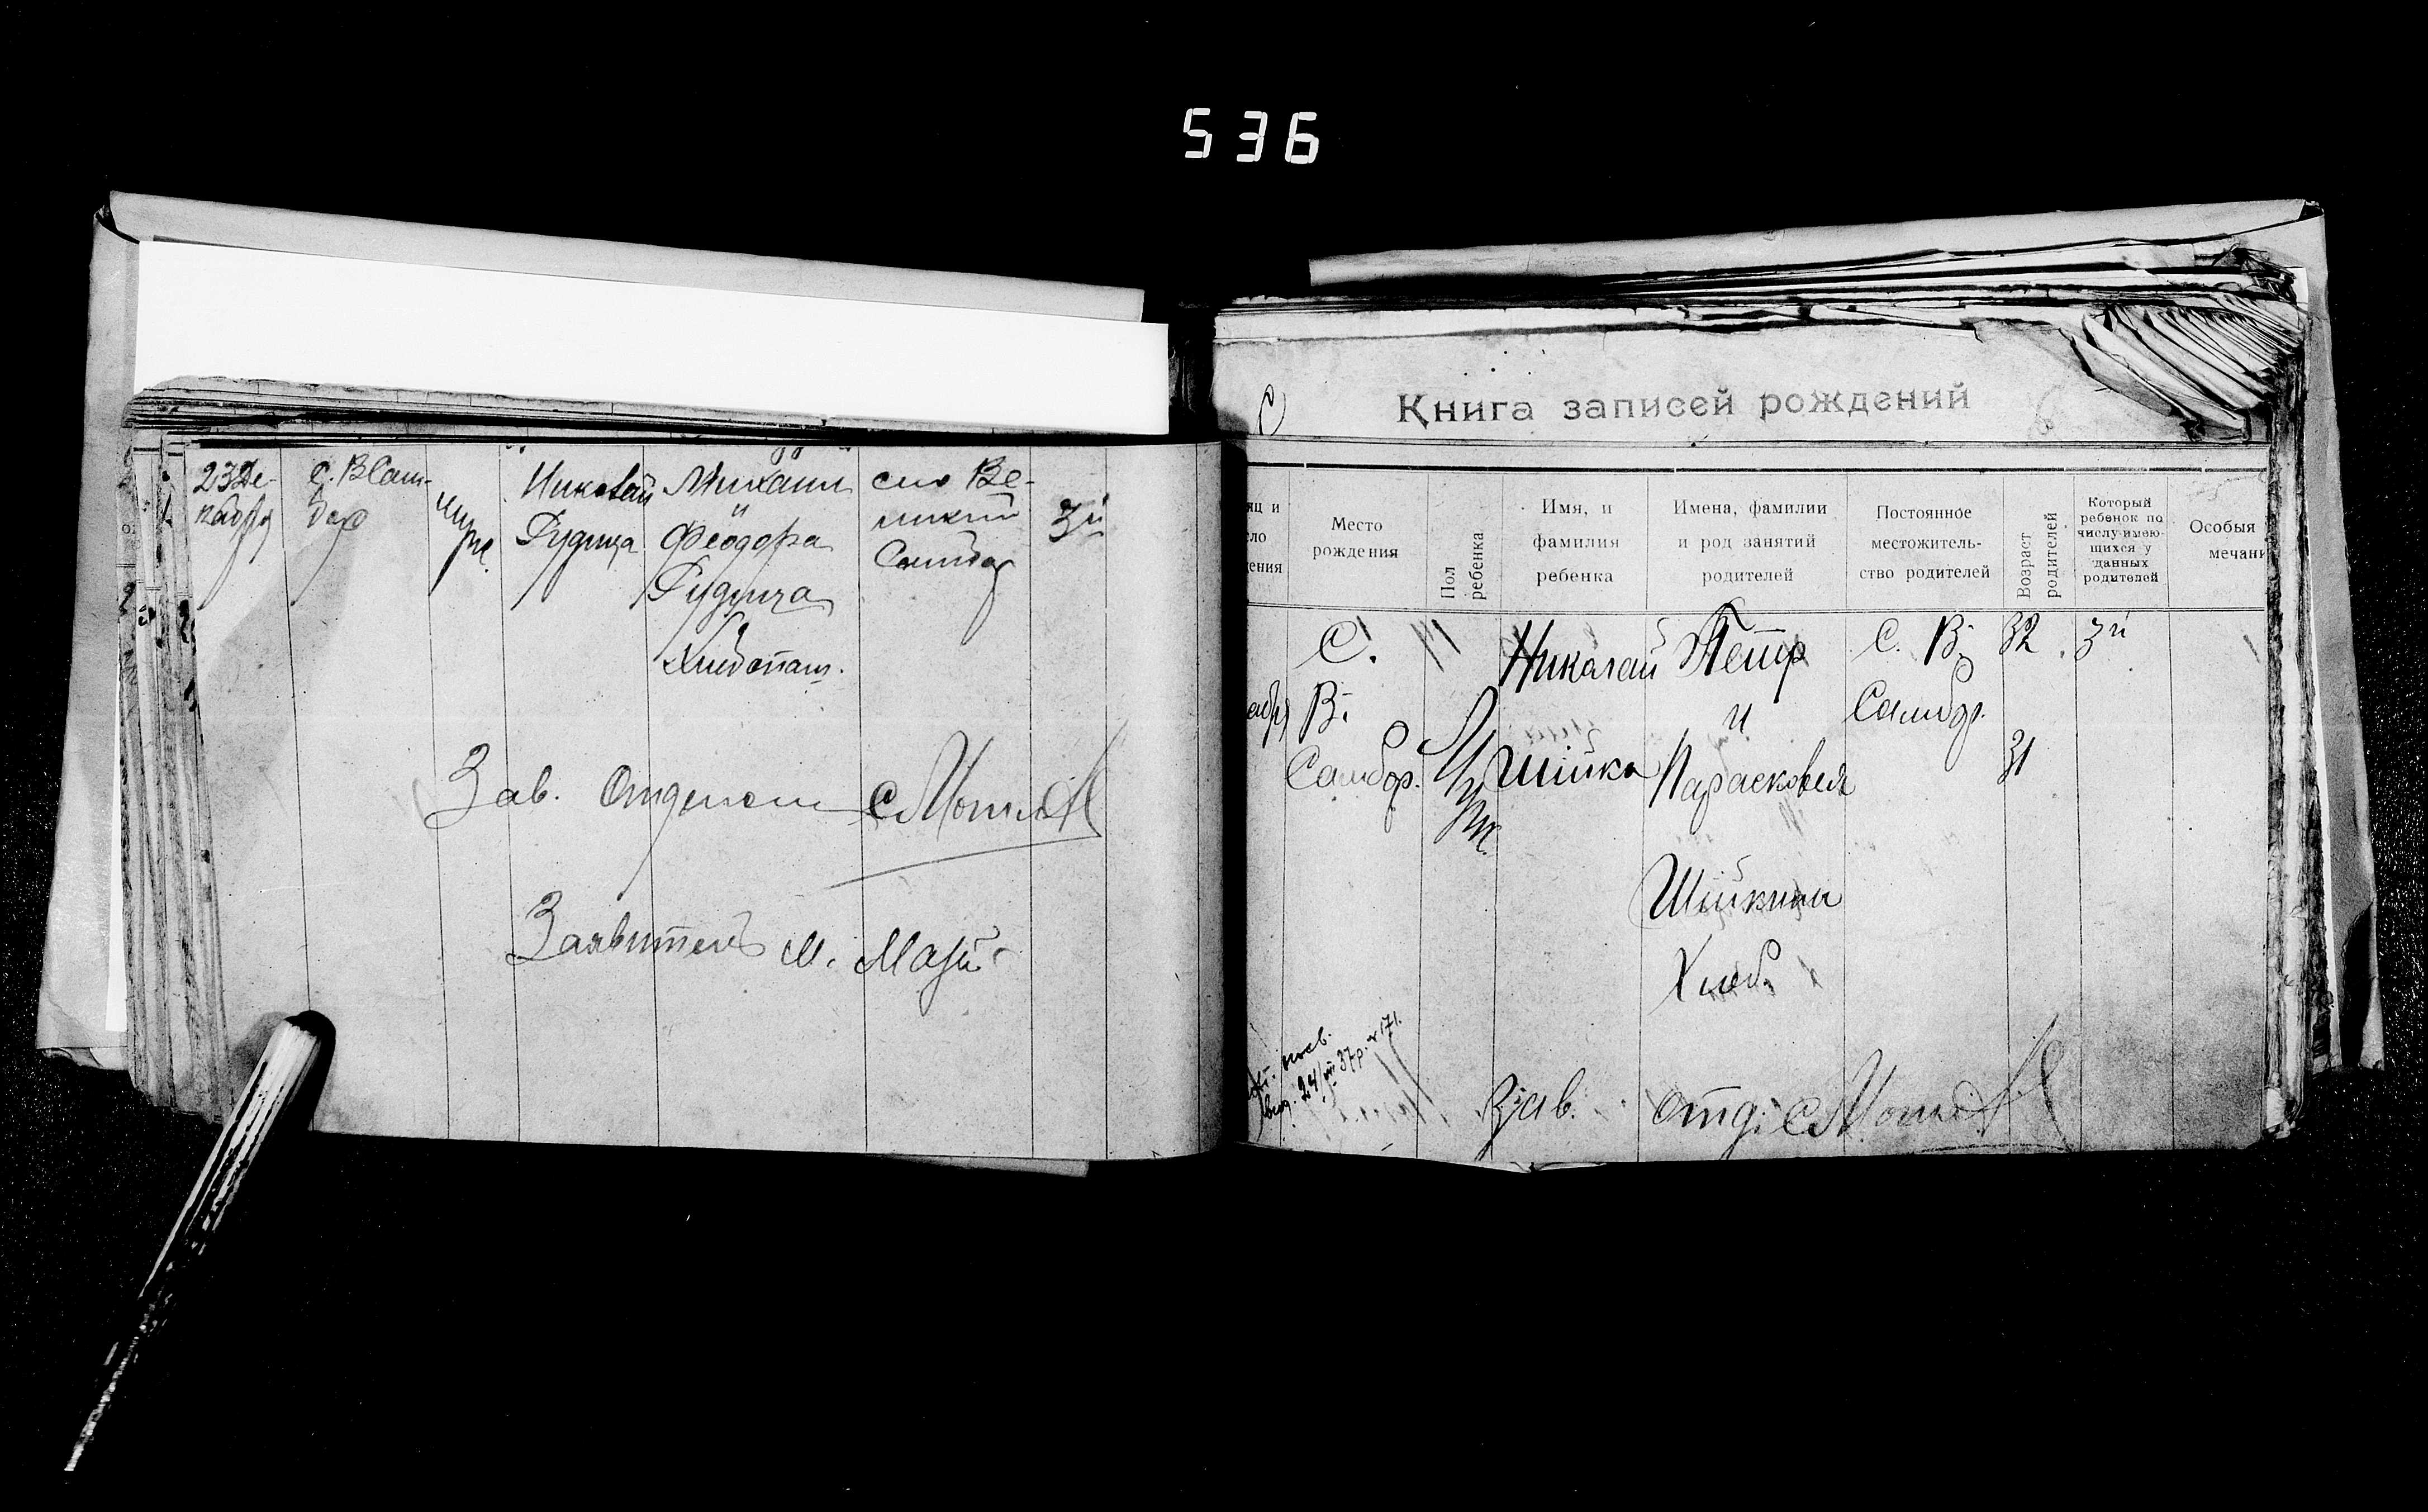 536
23 Де-
кабря
с. В Сам-
бор
муж.
Николай
Рудица
Михаил
и
Феодора
Рудица
Хлебопаш.
село Ве-
ликий
Самбор
3й
Зав. Отделом
Заявитель М.
Книга записей рождений
Место
рождения
Пол
ребенка
Имя, и
фамилия
ребенка
Имена, фамилии
и род занятий
родителей
Постоянное
местожитель-
ство родителей
Возраст
родителей
Который
ребенок по
числу имею-
щихся у
данных
родителей
Особыя
мечани
С.
В.
Самбор.
Муж.
Николай
Шийка
Петр
и
Парасковея
Шийкины
Хлеб.
С. В.
Самбор.
32
31
3й
24/VII 37р. № 171.
Зав. отд.